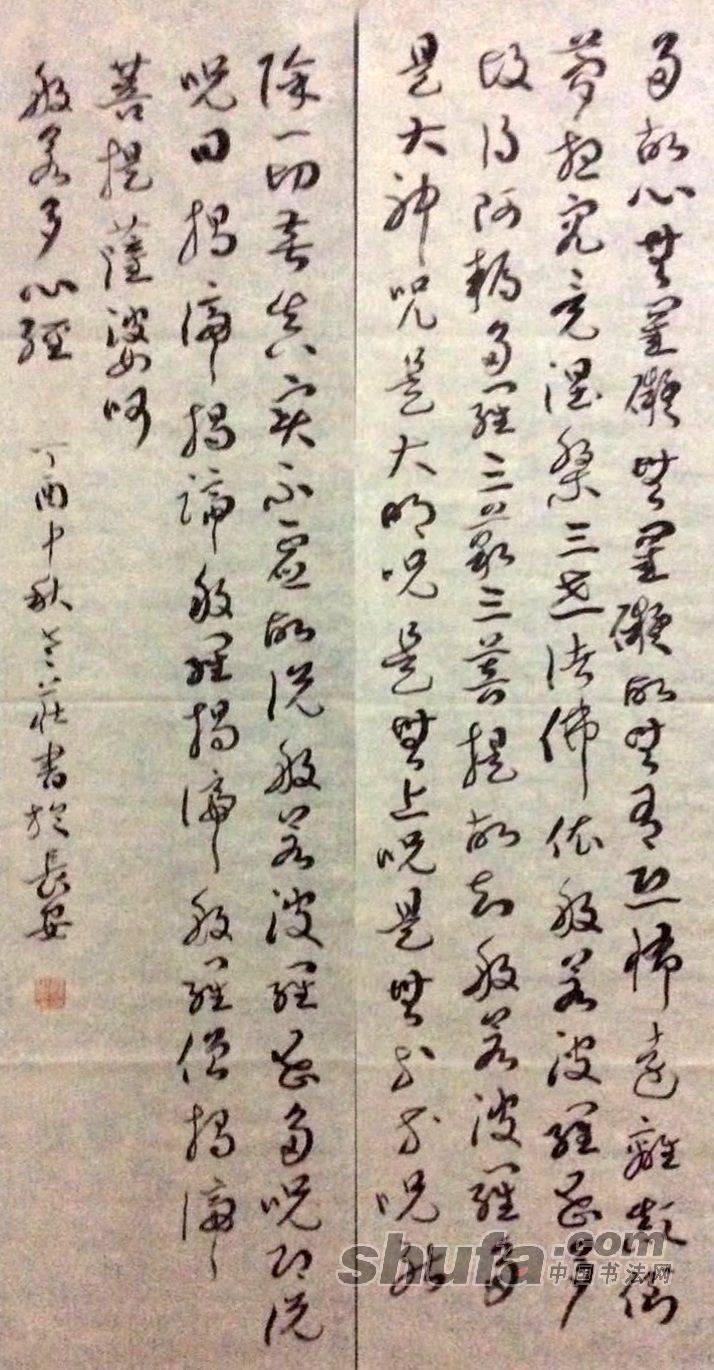 多故心無罣礙無罣礙故無有恐怖遠離顛倒
夢想究竟涅槃三世諸佛依般若波羅蜜多
故得阿耨多羅三藐三菩提故知般若波羅多
是大神呪是大明呪是無上呪是無等等呪能
除一切苦真實不虛故說般若波羅蜜多呪即說
呪曰揭諦揭諦般羅揭諦般羅僧揭諦
菩提薩婆呵
般若多心經
丁酉中秋莊書於長安
shufa.com
中国书法网